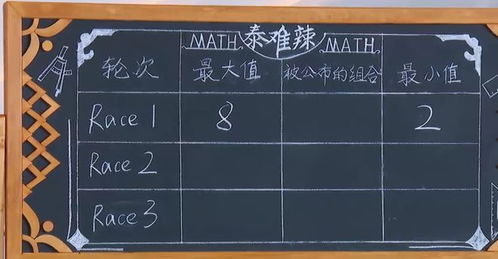 MATH 泰难辣 MATH
轮次 最大值 被公布的组合 最小值
Race 1 8 2
Race 2
Race 3